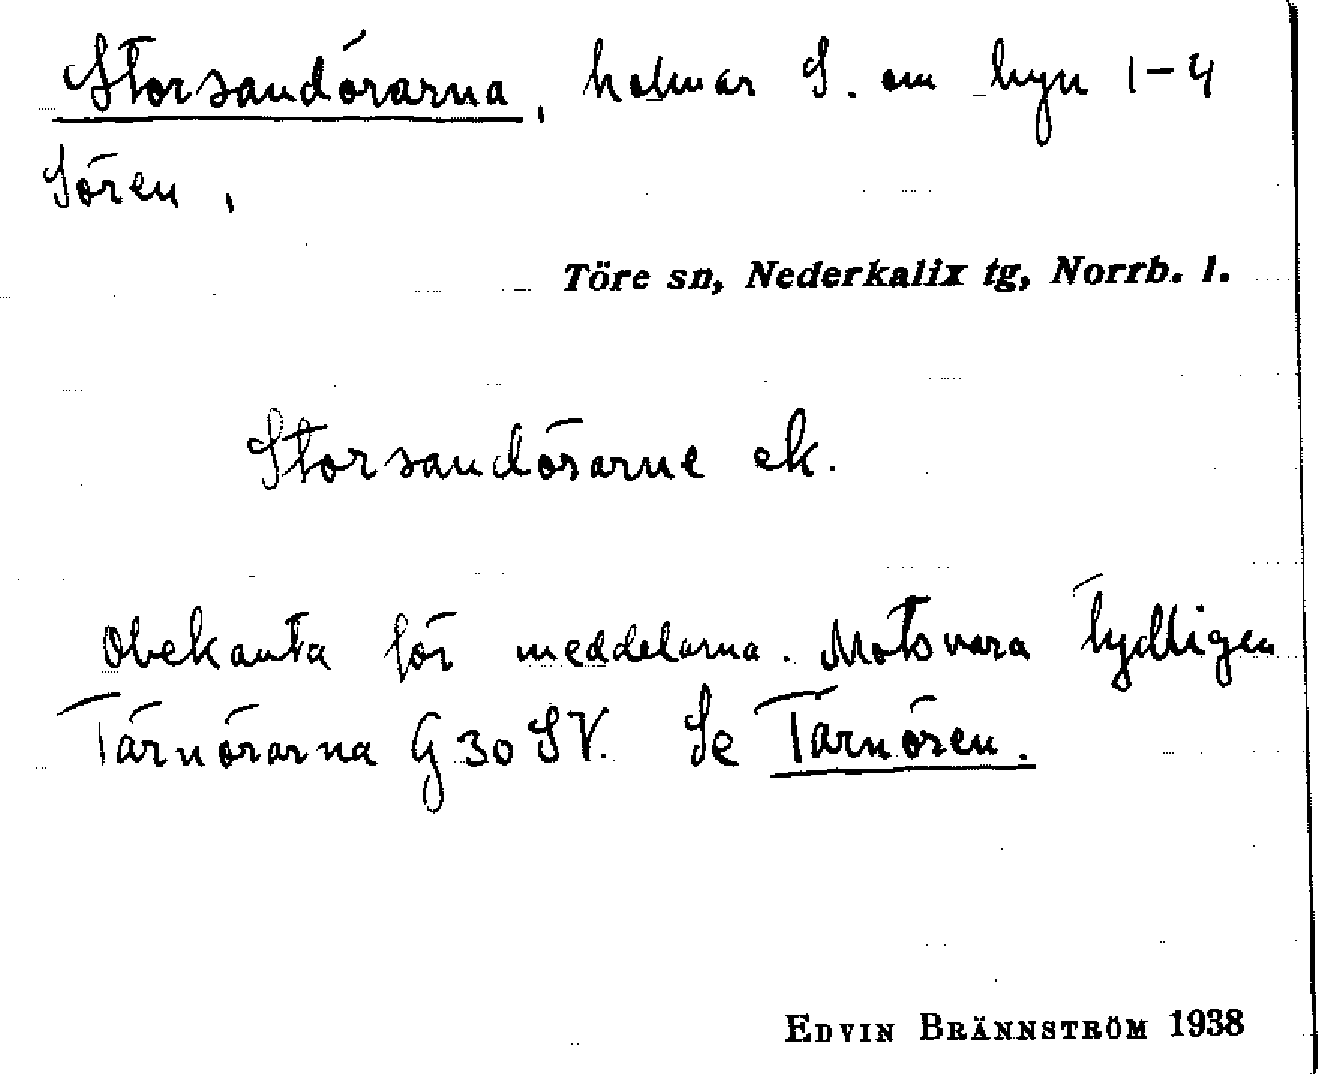 Storsandörarna, holmar S. om byn 1–4
Sören,
Töre sn, Nederkalix tg, Norrb. l.
Storsandörarne ek.
Obekanta för meddelarna. Motsvara tydligen
Tärnörarna G 30 SV. Se Tärnören.
EDVIN BRÄNNSTRÖM 1938